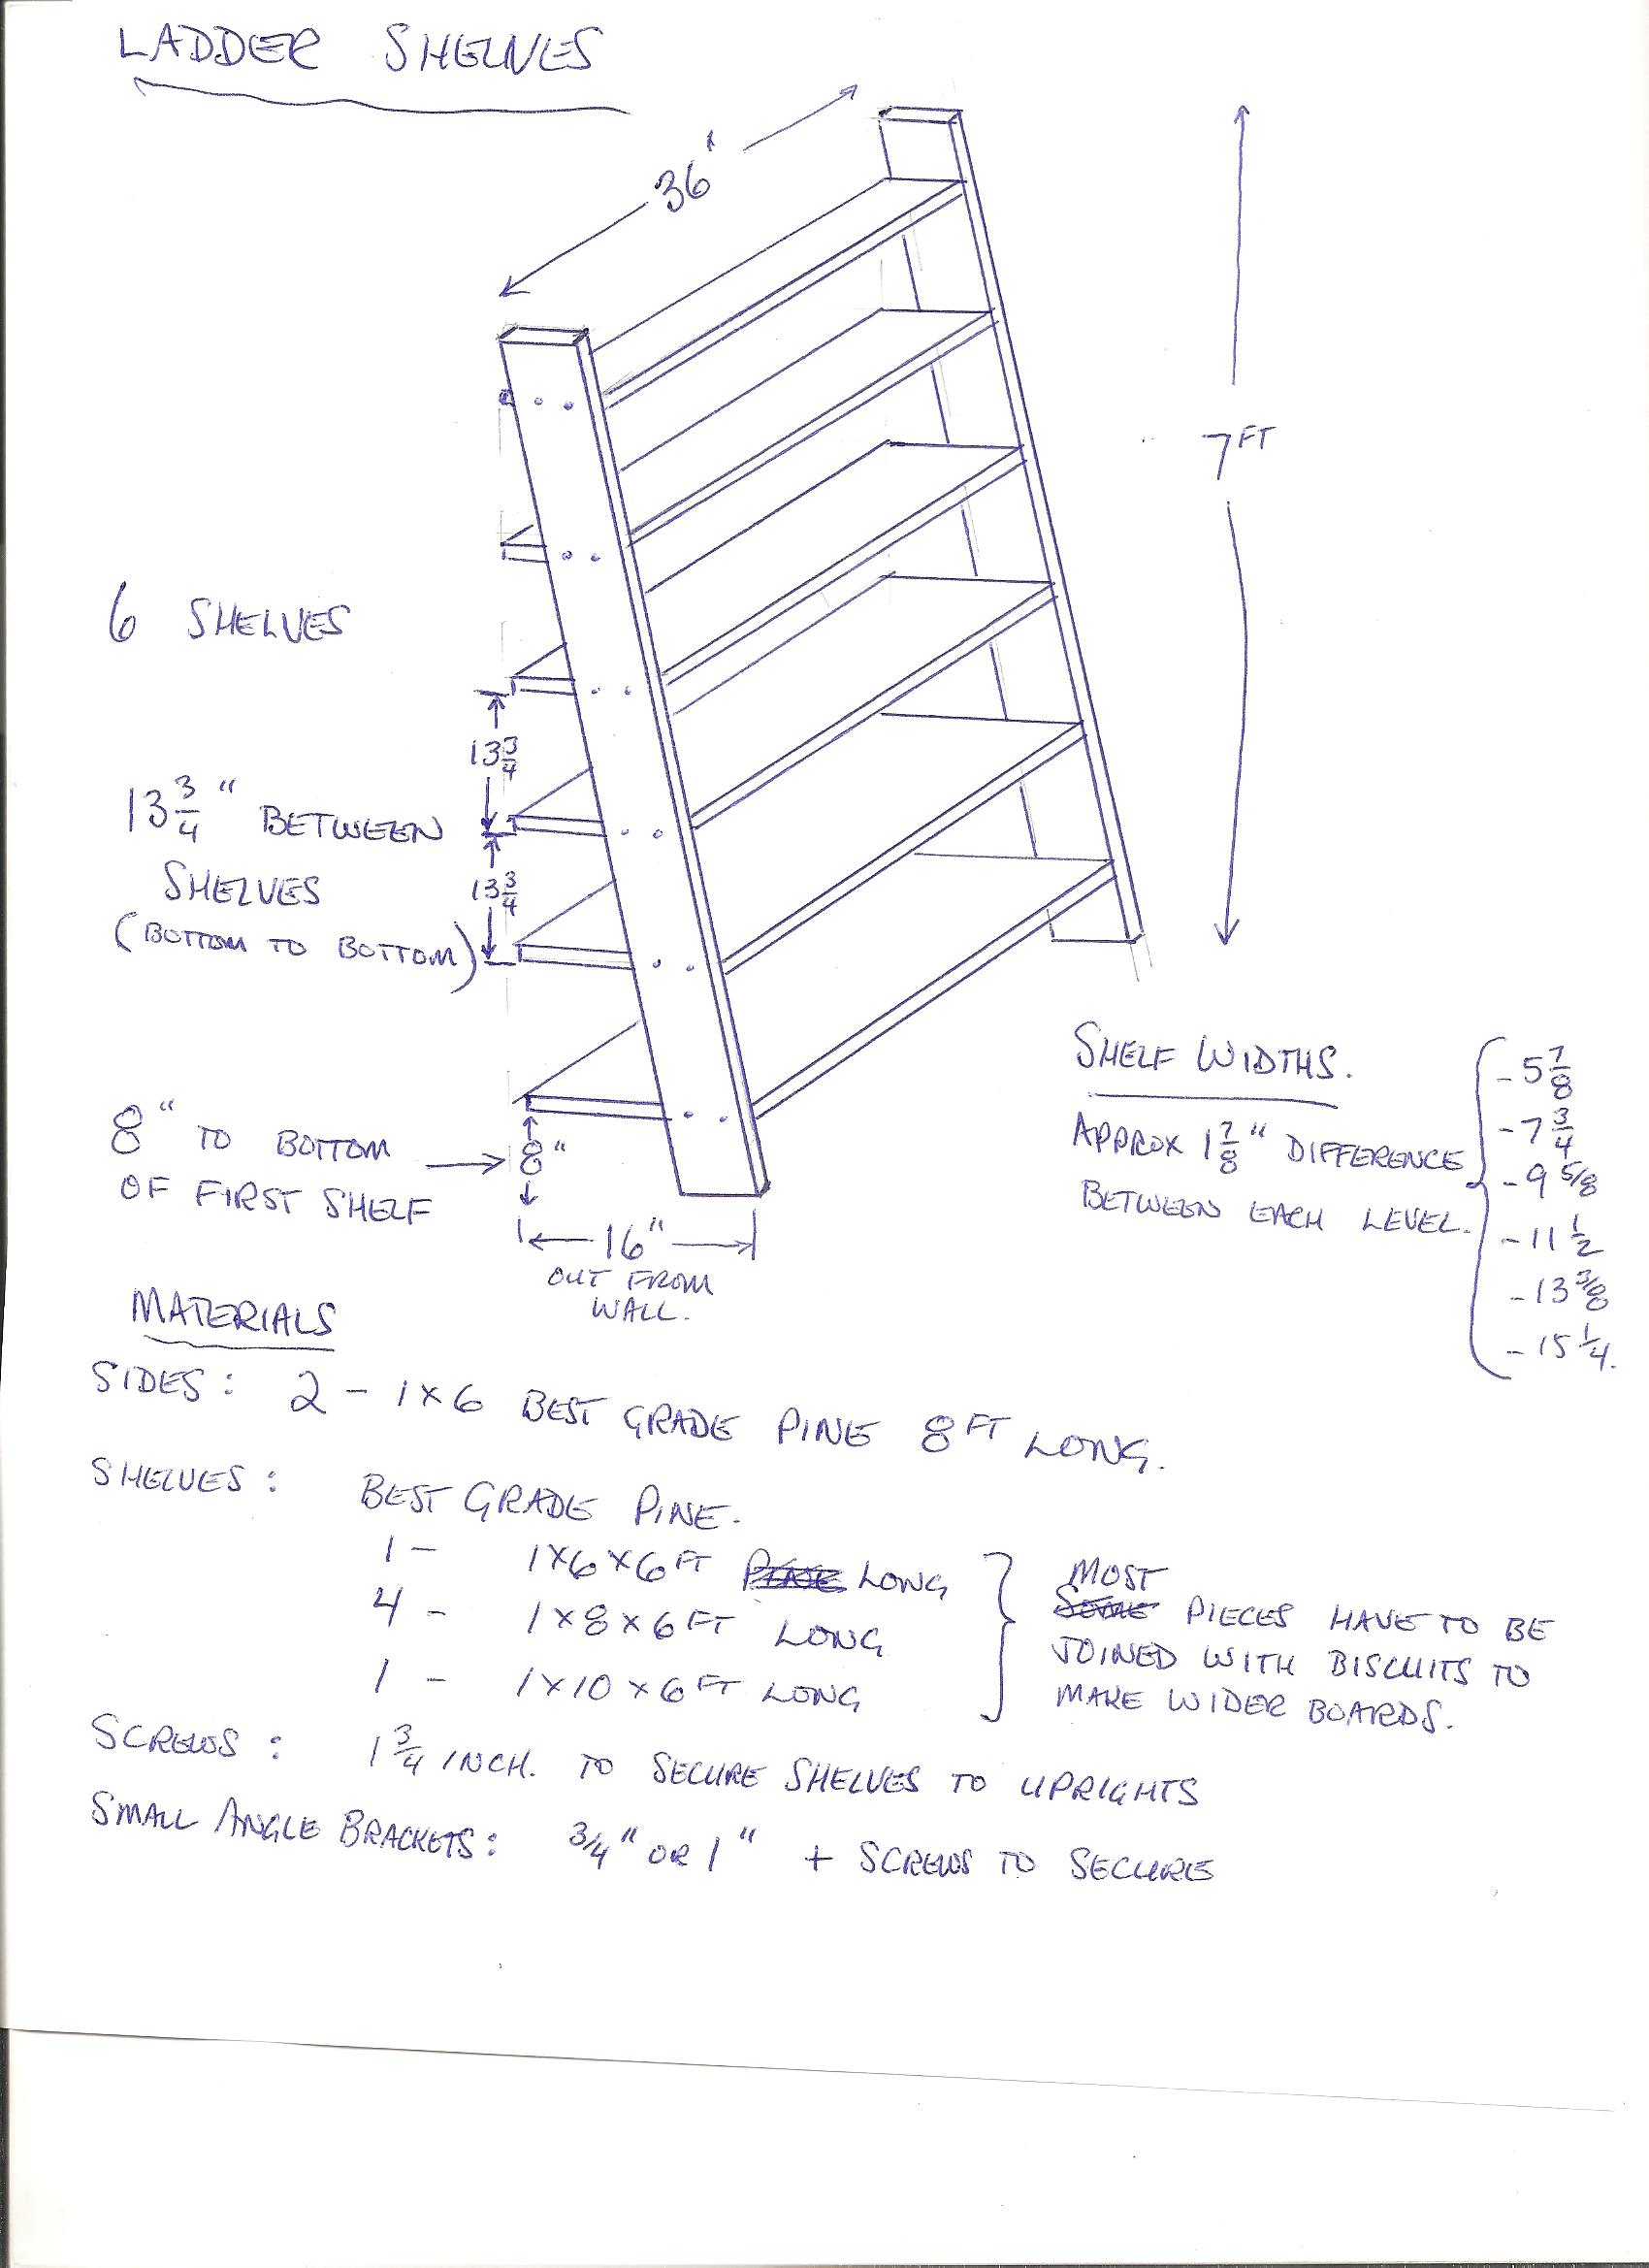 LADDER SHELVES
36"
7 FT
6 SHELVES
13 3/4
13 3/4 " BETWEEN
SHELVES
(BOTTOM TO BOTTOM)
13 3/4
8" TO BOTTOM
OF FIRST SHELF
8"
16"
OUT FROM
WALL.
SHELF WIDTHS.
APPROX 1 7/8" DIFFERENCE
BETWEEN EACH LEVEL.
- 5 7/8
- 7 3/4
- 9 5/8
- 11 1/2
- 13 3/8
- 15 1/4.
MATERIALS
SIDES: 2 - 1x6 BEST GRADE PINE 8 FT LONG.
SHELVES: BEST GRADE PINE.
1 - 1x6x6 FT LONG
4 - 1x8x6 FT LONG
1 - 1x10x6 FT LONG
MOST
SOME PIECES HAVE TO BE
JOINED WITH BISCUITS TO
MAKE WIDER BOARDS.
SCREWS: 1 3/4 INCH. TO SECURE SHELVES TO UPRIGHTS
SMALL ANGLE BRACKETS: 3/4" OR 1" + SCREWS TO SECURE